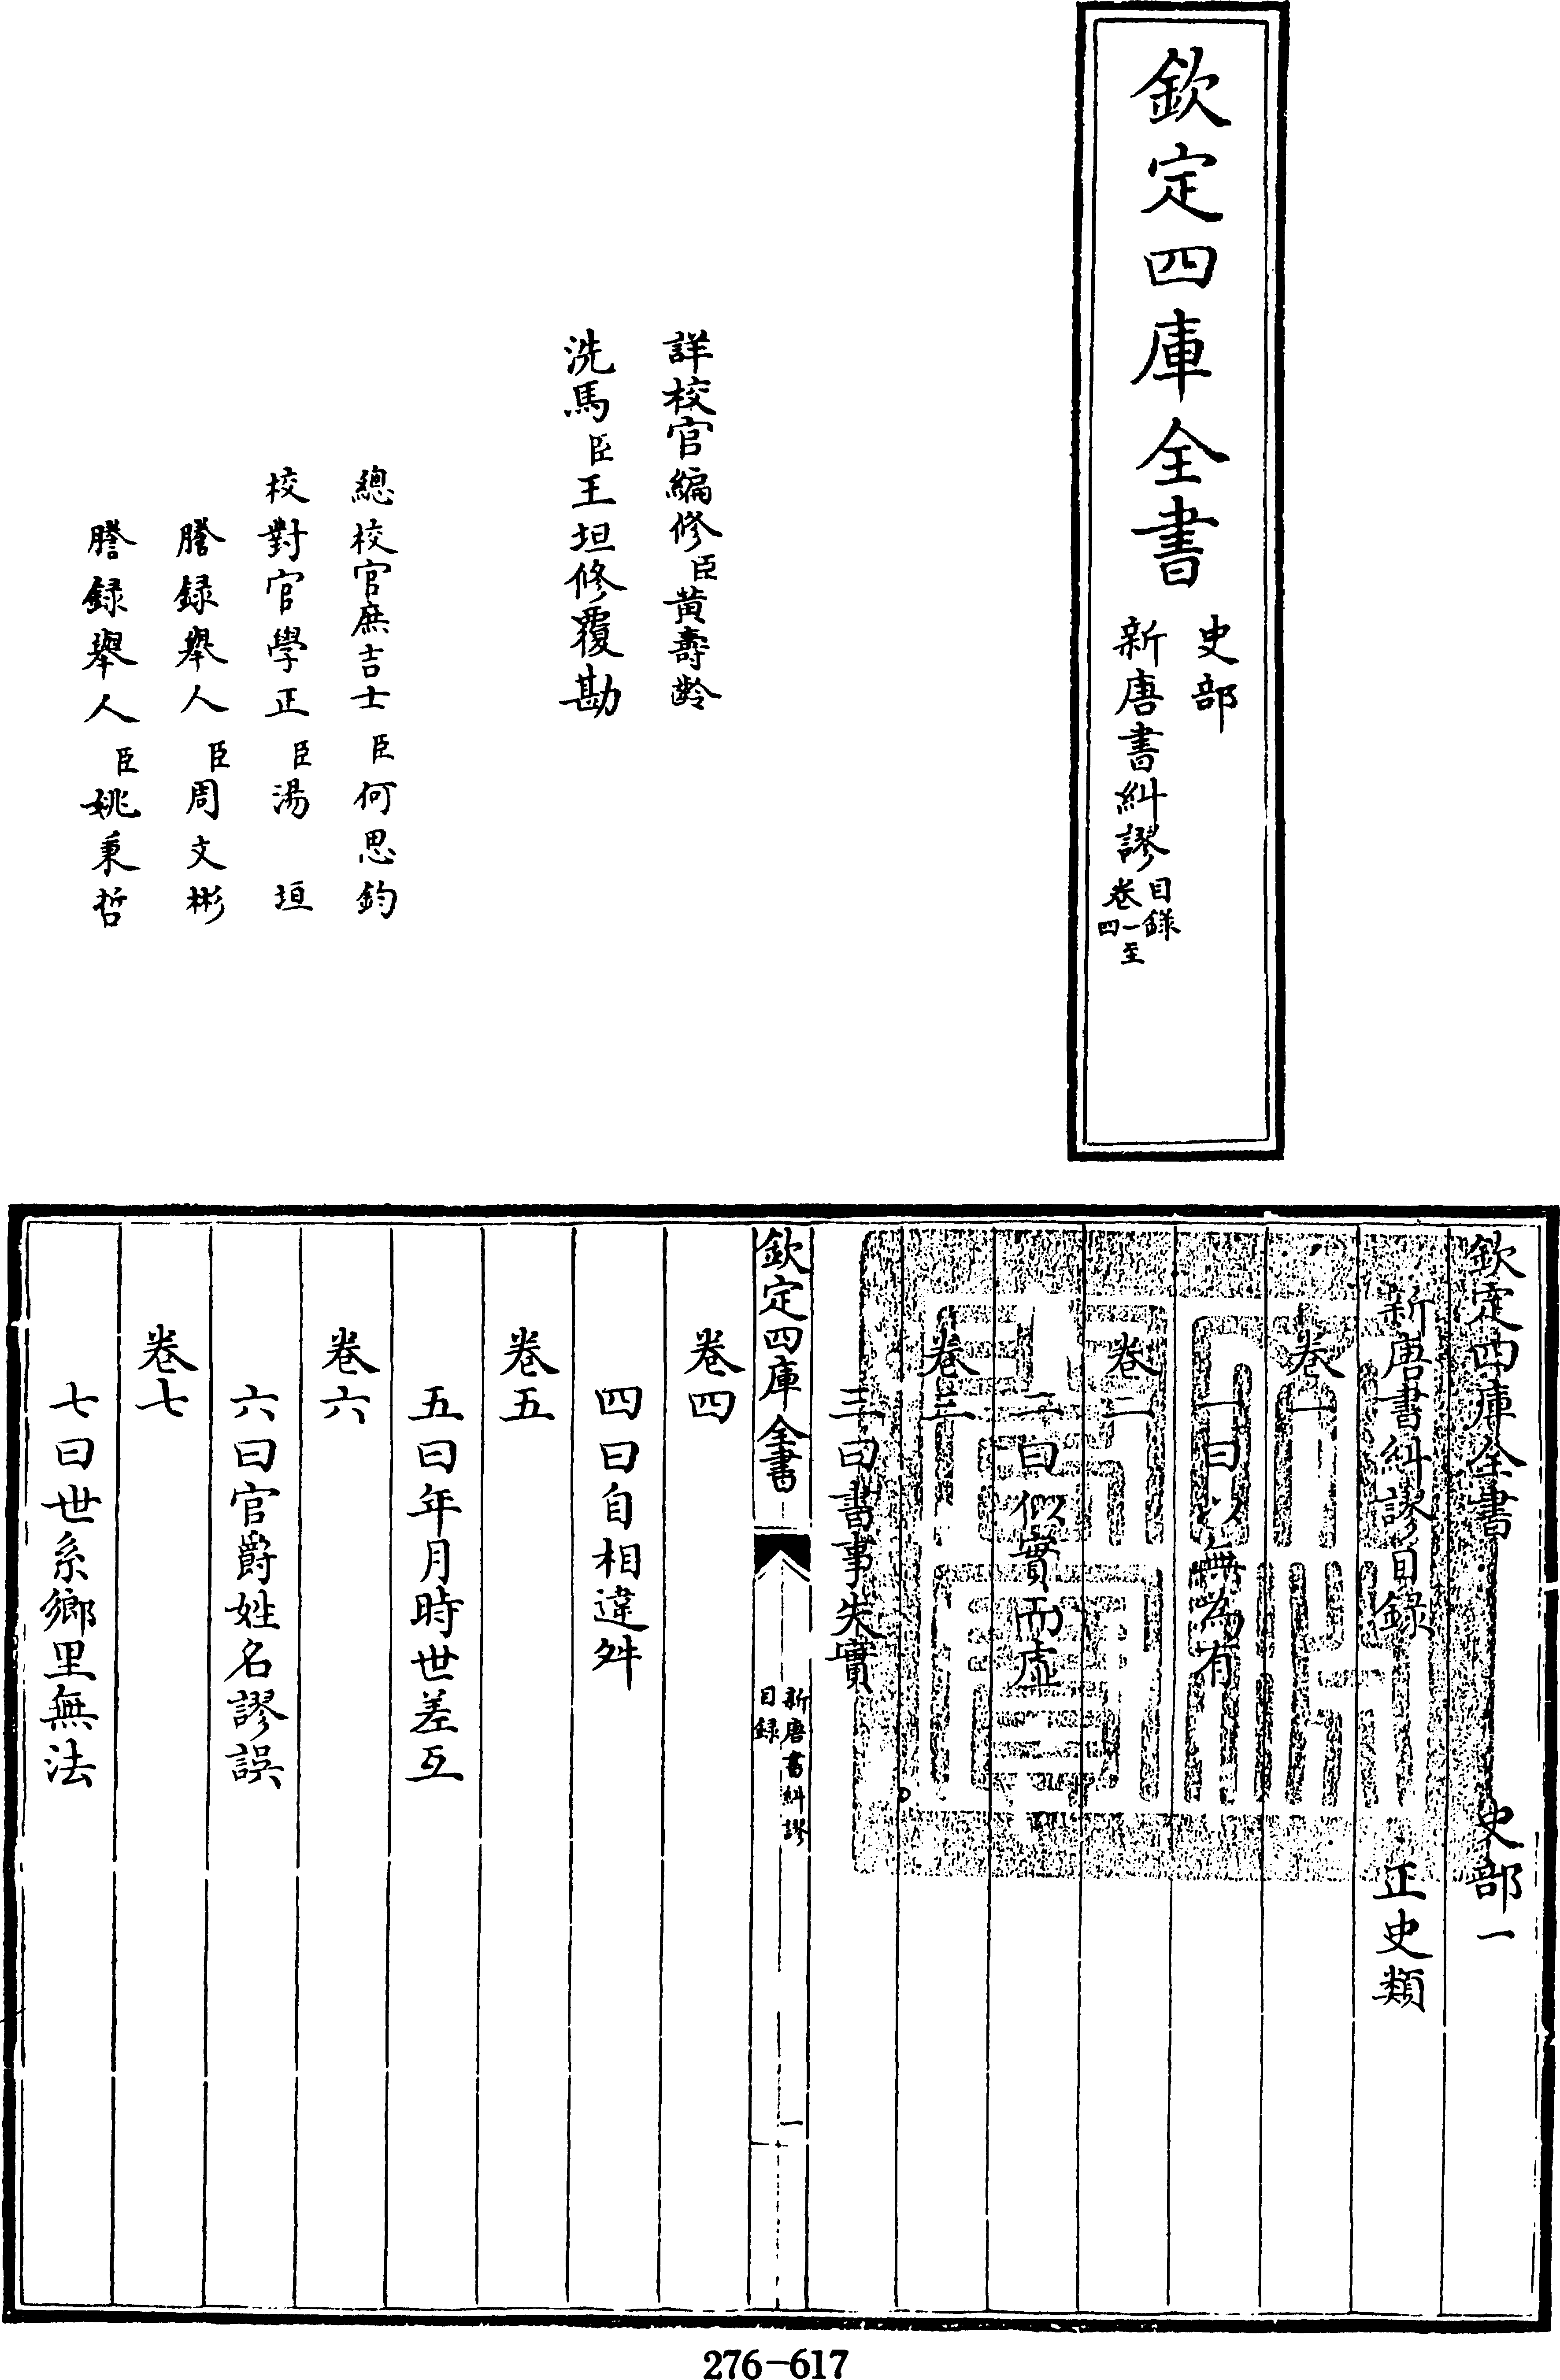 欽定四庫全書
史部
新唐書糾謬
目録
卷一至
四
詳校官編修臣黃壽齡
洗馬臣王坦修覆勘
總校官庶吉士臣何思鈞
校對官學正臣湯垣
謄録舉人臣周文彬
謄録舉人臣姚秉哲
欽定四庫全書 史部一
新唐書糾謬目錄 正史類
卷一
一曰以無為有
卷二
二曰似實而虛
卷三
三曰書事失實
欽定四庫全書
新唐書糾謬
目録
一
卷四
四曰自相違舛
卷五
五曰年月時世差互
卷六
六曰官爵姓名謬誤
卷七
七曰世系鄉里無法
276-617